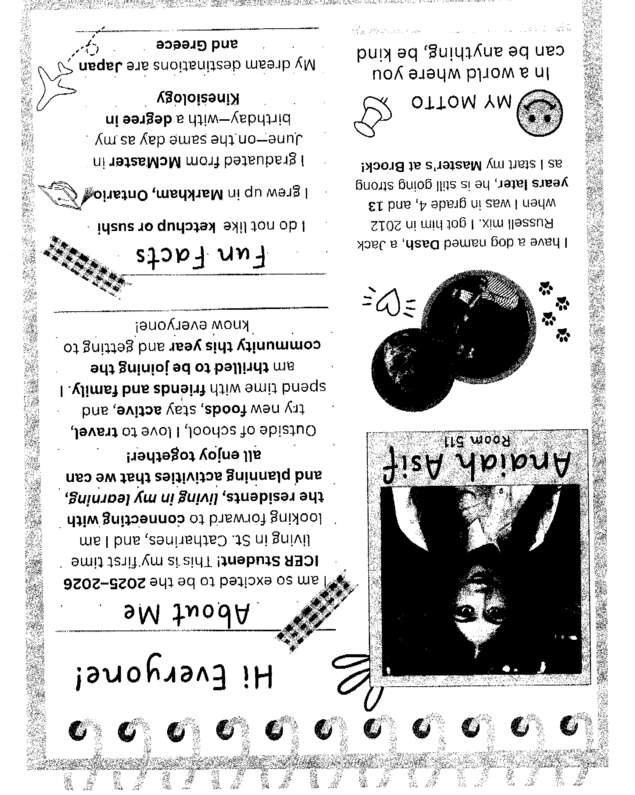 Hi Everyone!
Anaiah Asif
Room 511
About Me
I am so excited to be the 2025–2026
ICER Student! This is my first time
living in St. Catharines, and I am
looking forward to connecting with
the residents, living in my learning,
and planning activities that we can
all enjoy together!
Outside of school, I love to travel,
try new foods, stay active, and
spend time with friends and family. I
am thrilled to be joining the
community this year and getting to
know everyone!
I have a dog named Dash, a Jack
Russell mix. I got him in 2012
when I was in grade 4, and 13
years later, he is still going strong
as I start my Master's at Brock!
Fun Facts
I do not like ketchup or sushi
I grew up in Markham, Ontario
I graduated from McMaster in
June—on the same day as my
birthday—with a degree in
Kinesiology
My dream destinations are Japan
and Greece
MY MOTTO
In a world where you
can be anything, be kind